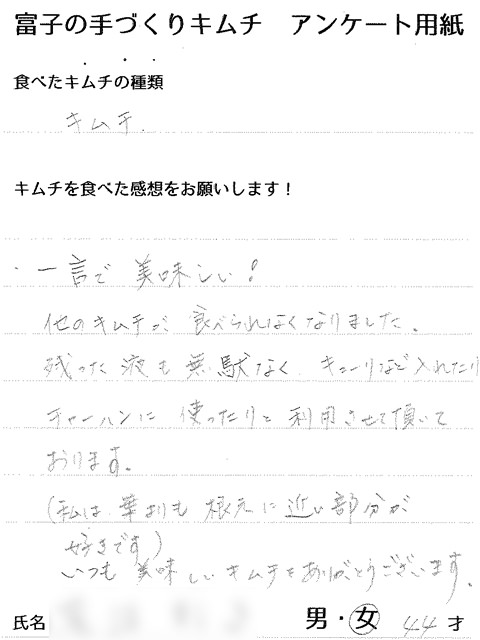 富子の手づくりキムチ　アンケート用紙
食べたキムチの種類
キムチ.
キムチを食べた感想をお願いします！
・一言で 美味しい！
他のキムチが 食べられなくなりました。
残った液も無駄なく、キューリなど入れたり
チャーハンに 使ったりと 利用させて頂いて
おります。
(私は 葉よりも 根元に近い部分が
好きです)
いつも 美味しいキムチをありがとうございます。
氏名
男・女 44才